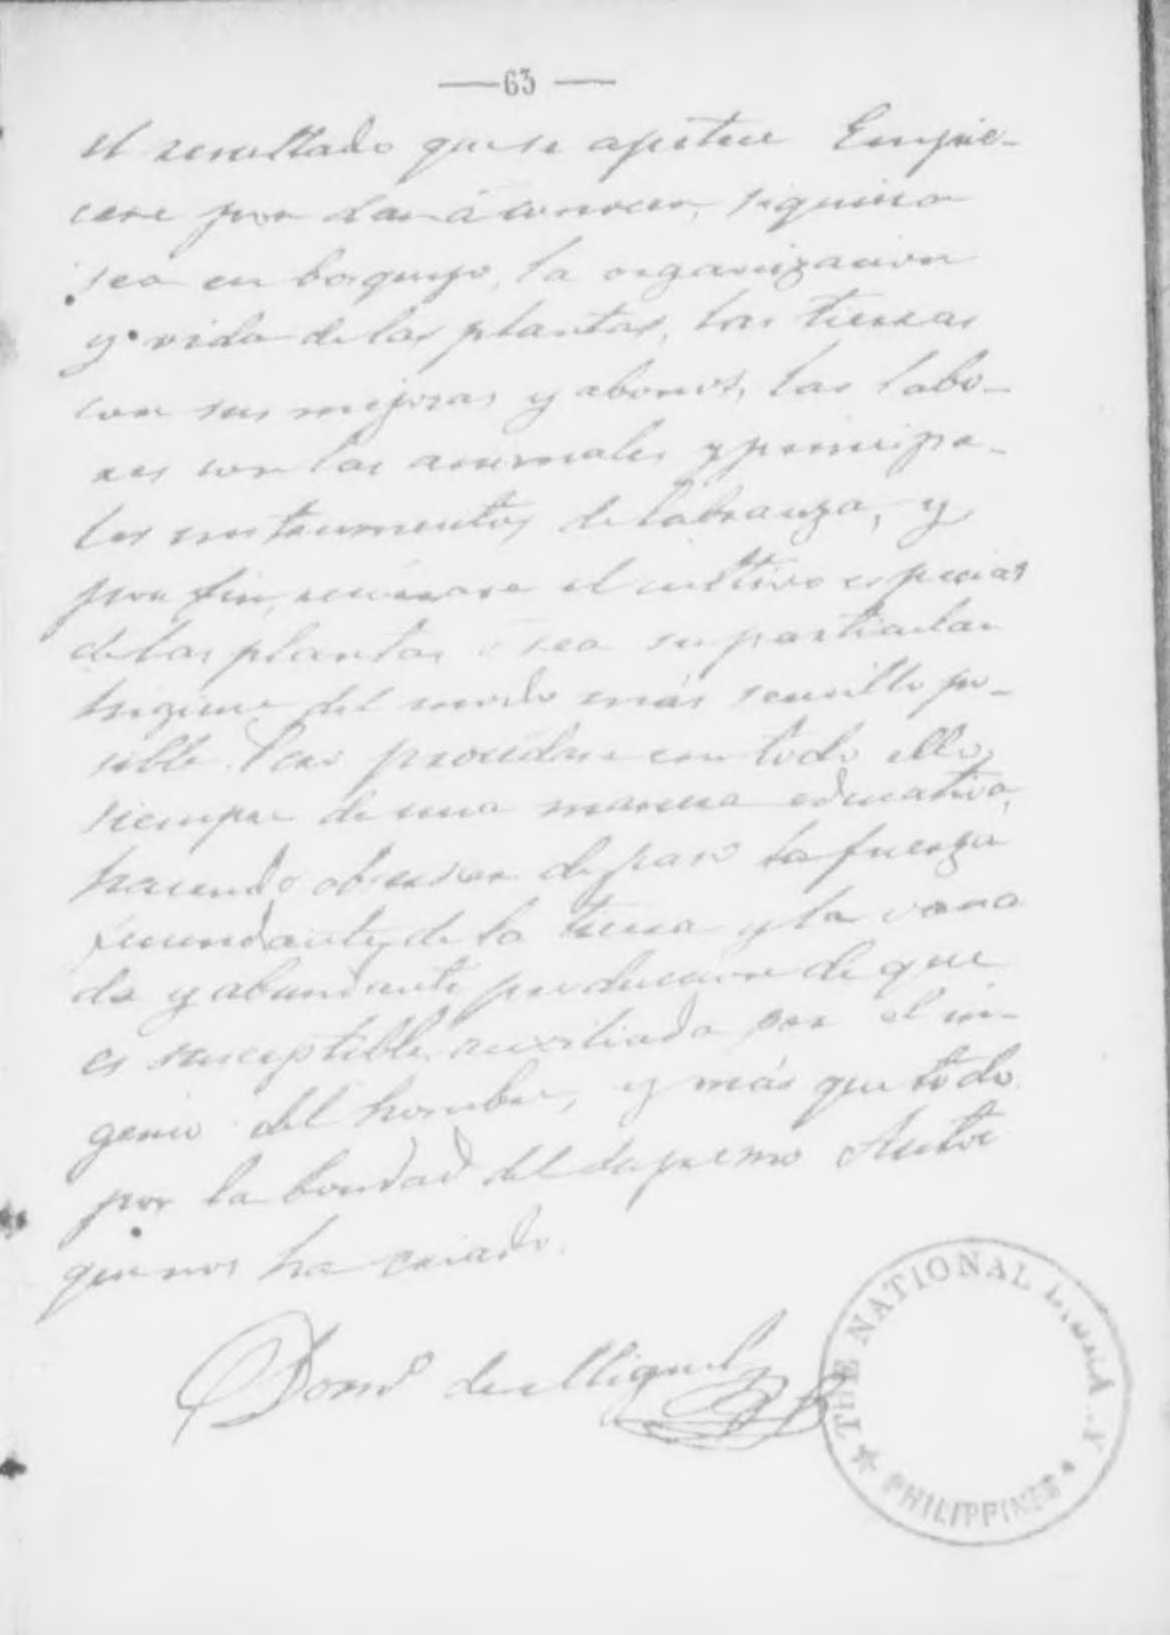 — 63 —
el resultado que se apetece Empie-
cese por dar á conocer, siquiera
sea en bosquejo, la organizacion
y vida de las plantas, las tierras
con sus mejoras y abonos, las labo-
res con los animales y principa-
les instrumentos de labranza, y
por fin, el cultivo especial
de las plantas ó sea su particular
higiene del modo más sencillo po-
sible. Pero procédase con todo ello
siempre de una manera educativa,
haciendo observar de paso la fuerza
fecundante de la tierra y la varia
da y abundante produccion de que
es susceptible, auxiliada por el in-
genio del hombre, y más que todo
por la bondad del Supremo Autor
que nos ha criado.
Dom.º de Miguel
THE NATIONAL LIBRARY
PHILIPPINES